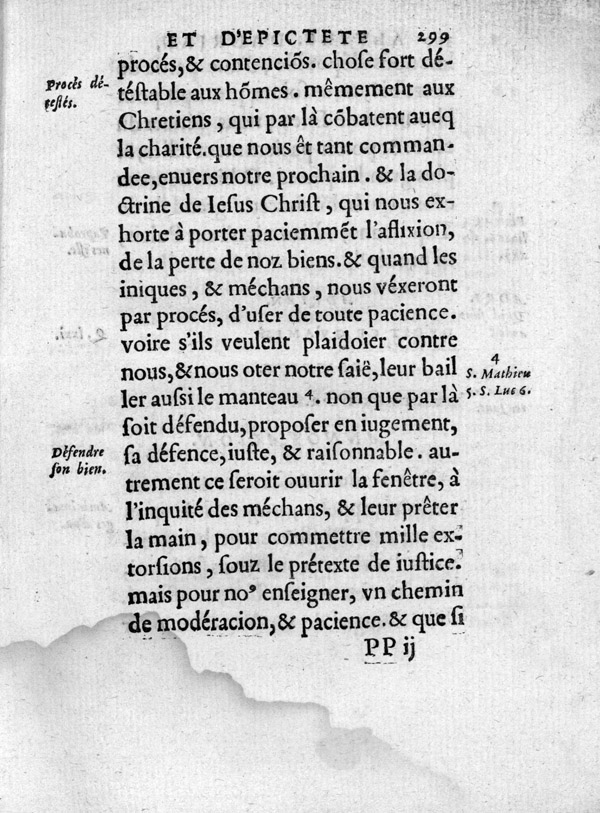 ET D'EPICTETE 299
procés,& contenciõs. choſe fort dé-
Procès dé-
teſtés.
téſtable aux hõmes. mêmement aux
Chretiens, qui par là cõbatent aueq
la charité.que nous êt tant comman-
dee,enuers notre prochain. & la do-
ctrine de Ieſus Chriſt, qui nous ex-
horte à porter paciemmẽt l'aflixion,
de la perte de noz biens.& quand les
iniques, & méchans, nous véxeront
par procés, d'uſer de toute pacience.
voire s'ils veulent plaidoier contre
nous,&nous oter notre ſaië,leur bail
ler auſsi le manteau 4. non que par là
4
S. Mathieu
5. S. Luc 6.
ſoit défendu,propoſer en iugement,
ſa défence,iuſte, & raiſonnable. au-
Défendre
ſon bien.
trement ce ſeroit ouurir la fenêtre, à
l'inquité des méchans, & leur prêter
la main, pour commettre mille ex-
torſions, ſouz le prétexte de iuſtice.
mais pour noꝰ enſeigner, vn chemin
de modéracion,& pacience.& que ſi
PP ij